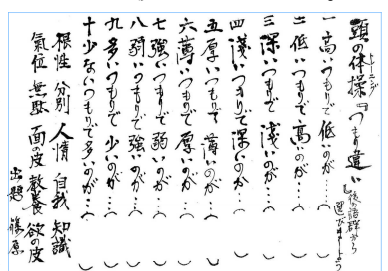 頭の体操 つもり違い
トレーニング
後の語群から選びましょう
一 高いつもりで低いのが…( )
二 低いつもりで高のが…( )
三 深いつもりで浅いのが…( )
四 淺いつもりで深いのが…( )
五 厚いつもりで薄いのが…( )
六 薄いつもりで厚いのが…( )
七 強いつもりで弱いのが…( )
八 弱いつもりで強いのが…( )
九 多いつもりで少いのが…( )
十 少ないつもりで多いのが…( )
根性 分別 人情 自我 知識
氣位 無駄 面の皮 教養 欲の皮
出題 篠原